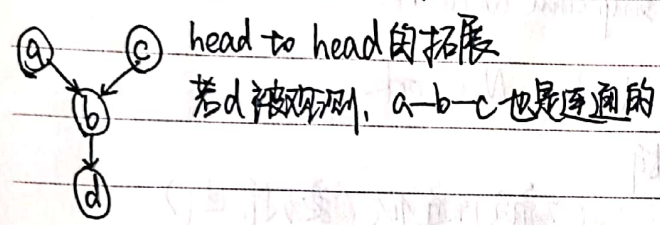 a c head to head的拓展
b 若d被观测，a-b-c也是连通的
d